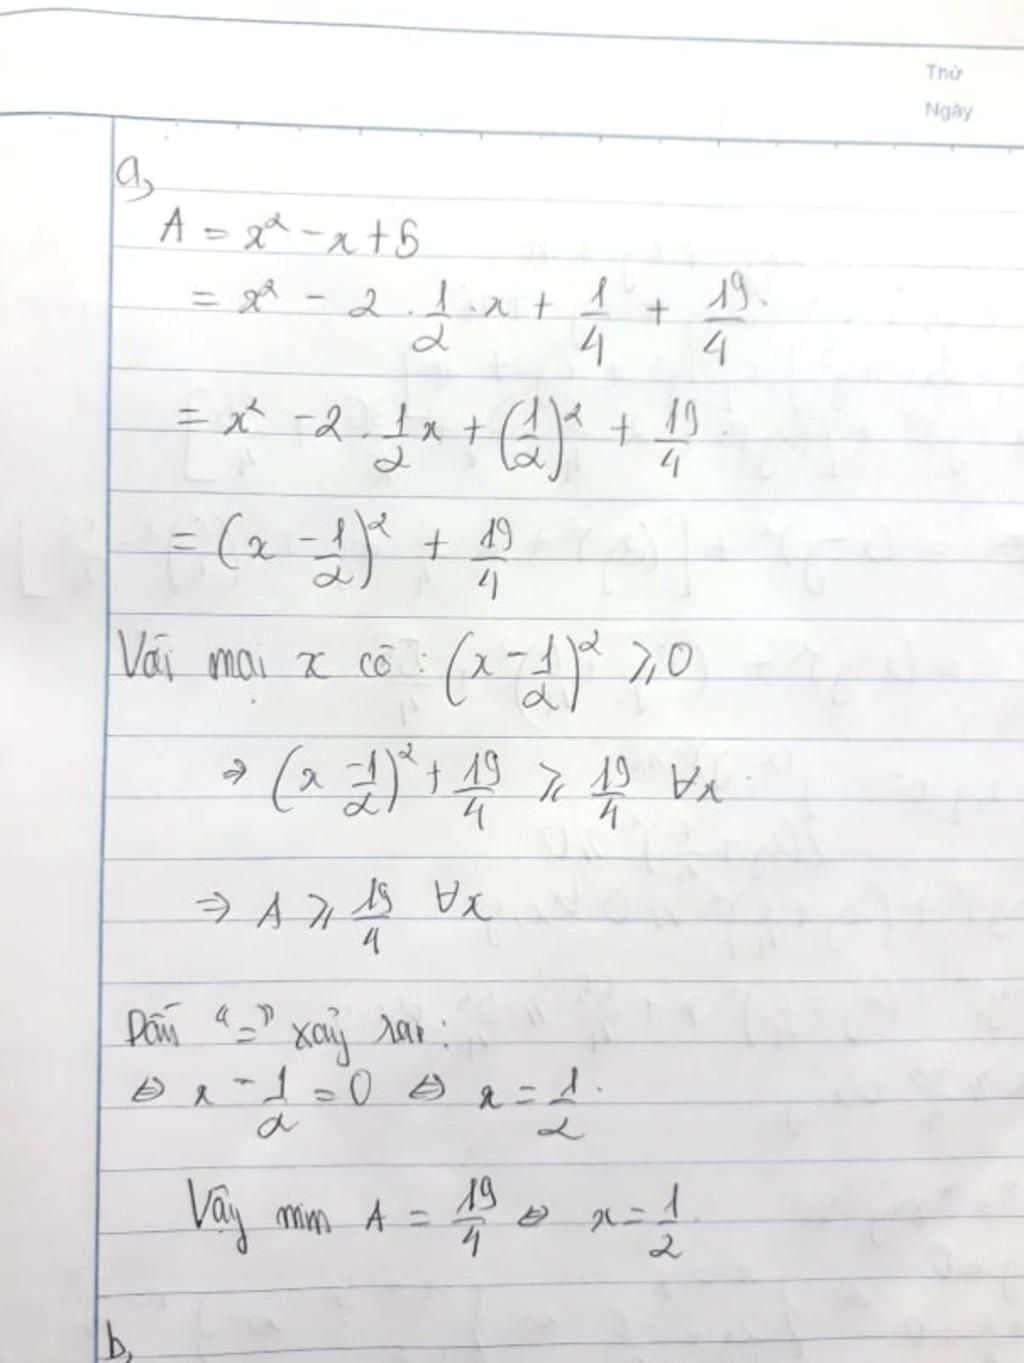 Thứ
Ngày
a,
A = x² - x + 5
= x² - 2 . 1/2 . x + 1/4 + 19/4.
= x² - 2 . 1/2 x + (1/2)² + 19/4
= (x - 1/2)² + 19/4
Với mọi x có : (x - 1/2)² ⩾ 0
⇒ (x - 1/2)² + 19/4 ⩾ 19/4 ∀x
⇒ A ⩾ 19/4 ∀x
Dấu "=" xảy ra :
⇔ x - 1/2 = 0 ⇔ x = 1/2.
Vậy min A = 19/4 ⇔ x = 1/2.
b,